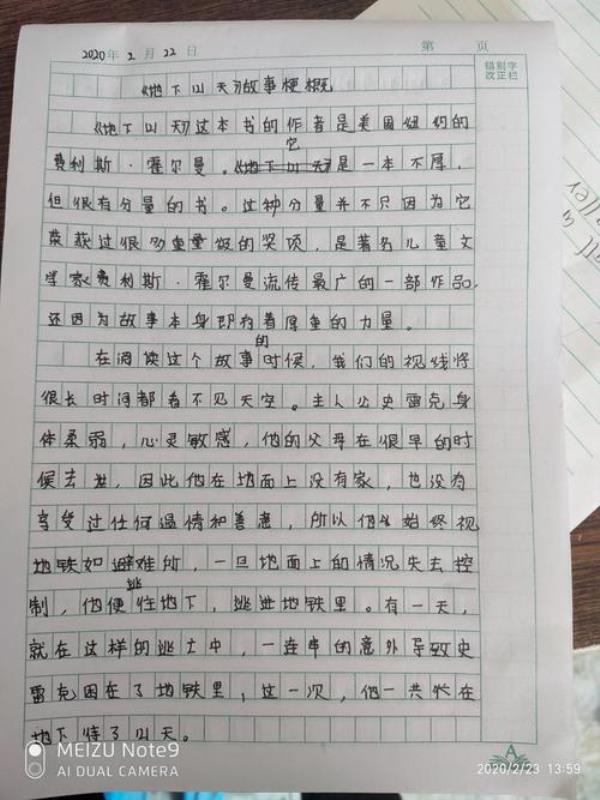 2020年 2 月 22 日 第 页
错别字
改正栏
《地下121天》故事梗概
《地下121天》这本书的作者是美国纽约的
它
费利斯·霍尔曼。《地下121天》是一本不厚,
但很有分量的书。这种分量并不只因为它
荣获过很多重量级的奖项,是著名儿童文
学家费利斯·霍尔曼流传最广的一部作品,
还因为故事本身即有着厚重的力量。
的
在阅读这个故事时候,我们的视线将
很长时间都看不见天空。主人公史雷克身
体柔弱,心灵敏感,他的父母在很早的时
候去世,因此他在地面上没有家,也没为
享受过任何温情和善意,所以他始终视
地铁如避难所,一旦地面上的情况失去控
逃
制,他便往地下,逃进地铁里。有一天,
就在这样的逃亡中,一连串的意外导致史
雷克困在了地铁里,这一次,他一共在
地下待了121天。
MEIZU Note9
AI DUAL CAMERA
2020/2/23 13:59